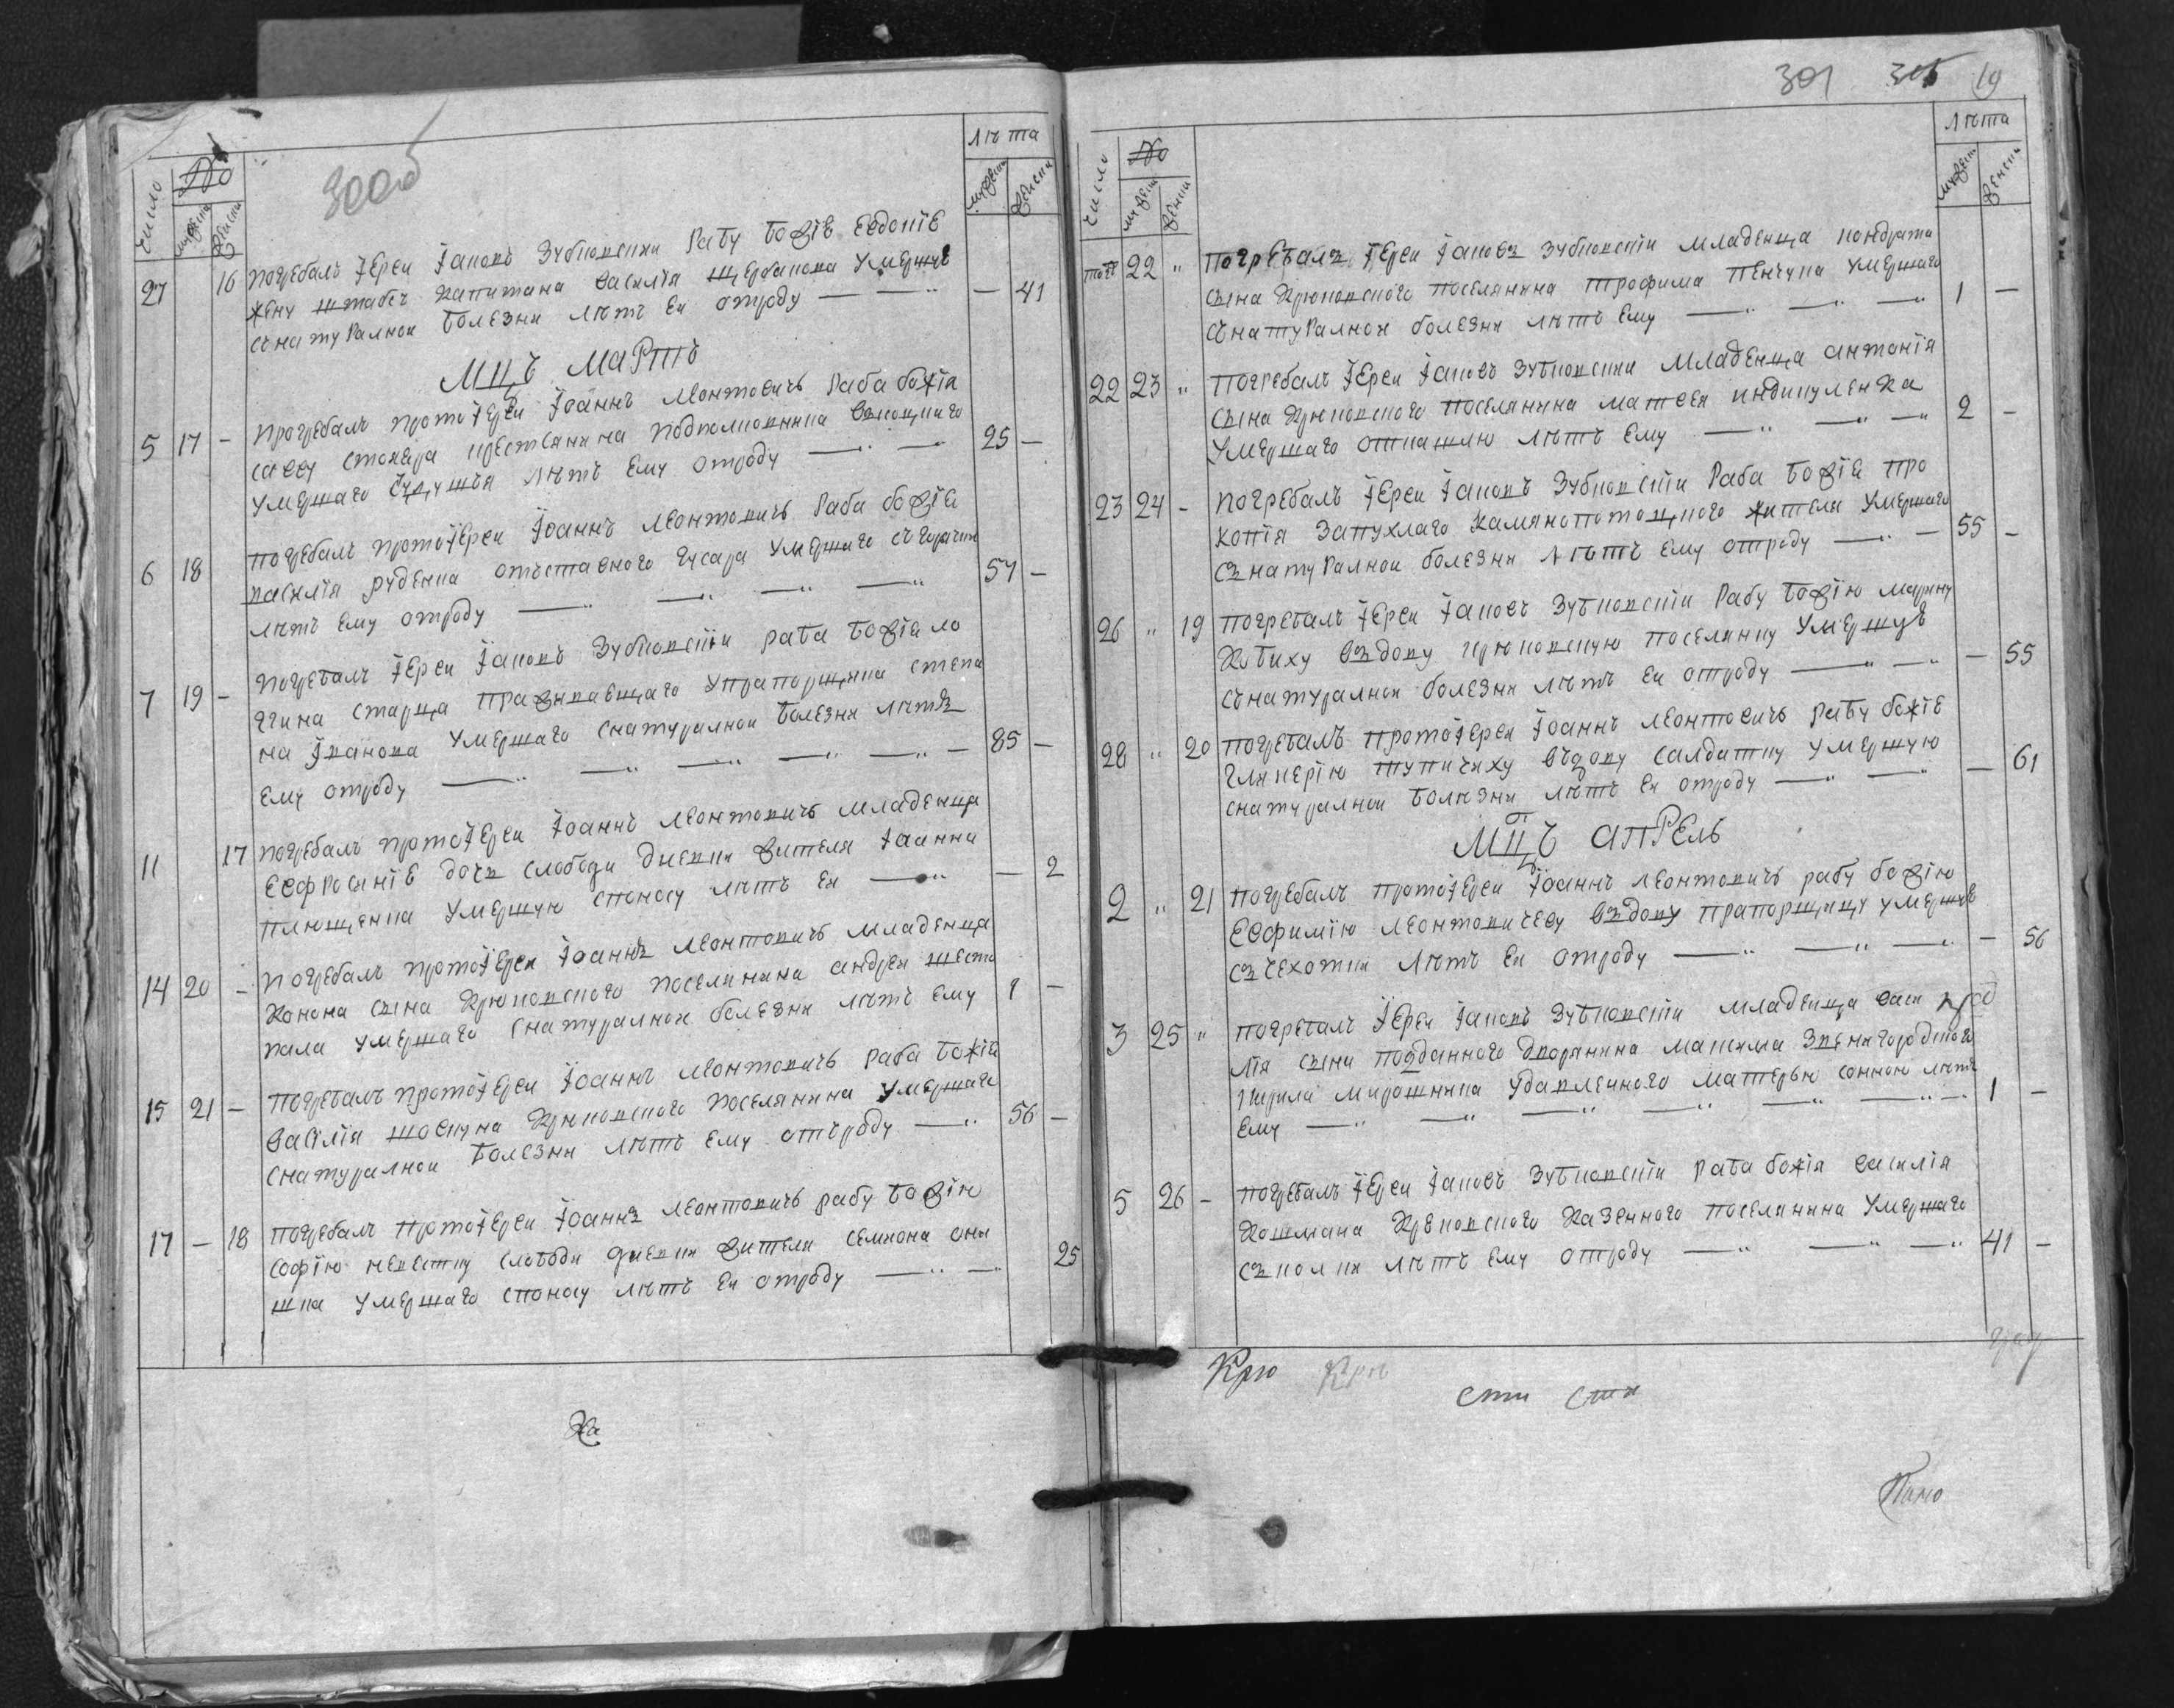 300об
Число № мужеска женска Лѣта мужеска женска
27 16 Погребалъ Іереи Іаковъ Зубковскии Рабу Божіе Евдокіе
жену штабсъ Капитана Василія Щербакова умершую
сънатуралнои болезни лѣтъ Еи отроду — 41
Мцъ Мартъ
5 17 - Прогребалъ протоіереи Іоаннъ Леонтовичъ Раба божія
Савву Столяра крестянина подполковника
умершаго лѣтъ Ему отроду 25 —
6 18 погребалъ протоіереи Іоаннъ Леонтовичъ Раба божія
василія руденка отъставного гусара умершаго съ горячки
лѣтъ Ему отроду 57 —
7 19 - Погребалъ Іереи Іаковъ Зубковскіи раба Божіа ло
ггина старца проживавщаго упрапорщика степа
на Іванова умершаго снатуралнои болезни лѣтъ
Ему отроду 85 —
11 17 погребалъ протоіереи Іоаннъ Леонтовичъ младенца
Еефросиніе дочь слободи жителя Іоанна
плющенка умершую споносу лѣтъ Еи — 2
14 20 - Погребалъ протоіереи Іоаннъ Леонтовичъ младенца
Конона сына Крюковского поселянина андрея шесто
пала умершаго снатуралнои болезни лѣтъ Ему 1 —
15 21 - Погребалъ протоіереи Іоаннъ Леонтовичъ Раба Божія
Василія шовкуна Крюковского Поселянина умершаго
снатуралнои болезни лѣтъ Ему отъроду 56 —
17 — 18 погребалъ протоіереи Іоаннъ Леонтовичъ рабу Божію
Софію невестку слободи жителя семиона они
шка умершаго споносу лѣтъ Еи отроду 25
На
301 19
Число № мужеска женска Лѣта мужеска женска
тогож 22 " Погребалъ Іереи Іаковъ Зубковскіи младенца кондрата
сына Крюковского поселянина трофима Пенчука умершаго
сънатуралнои болезни лѣтъ Ему 1 —
22 23 " Погребалъ Іереи Іаковъ Зубковскии Младенца антонія
сына Крюковского поселянина матвея индикуленка
умершаго откашлю лѣтъ Ему 2 -
23 24 - Погребалъ Іереи Іаковъ Зубковскіи Раба Божіа про
копія Запухлаго Камянопотоцкого жителя умершаго
сънатуралнои болезни лѣтъ Ему отроду 55 -
26 " 19 Погребалъ Іереи Іаковъ Зубковскіи Рабу Божію марину
Кобиху въдову крюковскую поселянку умершую
сънатуралнои болезни лѣтъ Еи отроду — 55
28 " 20 погребалъ протоіереи Іоаннъ Леонтовичъ рабу божіе
гликерію тупичиху въдову салдатку умершую
снатуралнои болѣзни лѣтъ Еи отроду — 61
Мцъ апРель
2 " 21 погребалъ протоіереи Іоаннъ леонтовичъ рабу божію
Еефимію леонтовичеву въдову прапорщицу умершую
съ чехотки лѣтъ Еи отроду — 56
3 25 " погребалъ Іереи Іаковъ Зубковскіи младенца васи
лія сына подданного дворянина максима Звенигородского
кирила мирошника удавленного матерью сонною лѣтъ
Ему 1 —
5 26 - погребалъ Іереи Іаковъ Зубковскіи раба божія василія
Кошмана Крековского Казенного поселянина умершаго
съ колки лѣтъ Ему отроду 41 -
Крю Крю
сти сти